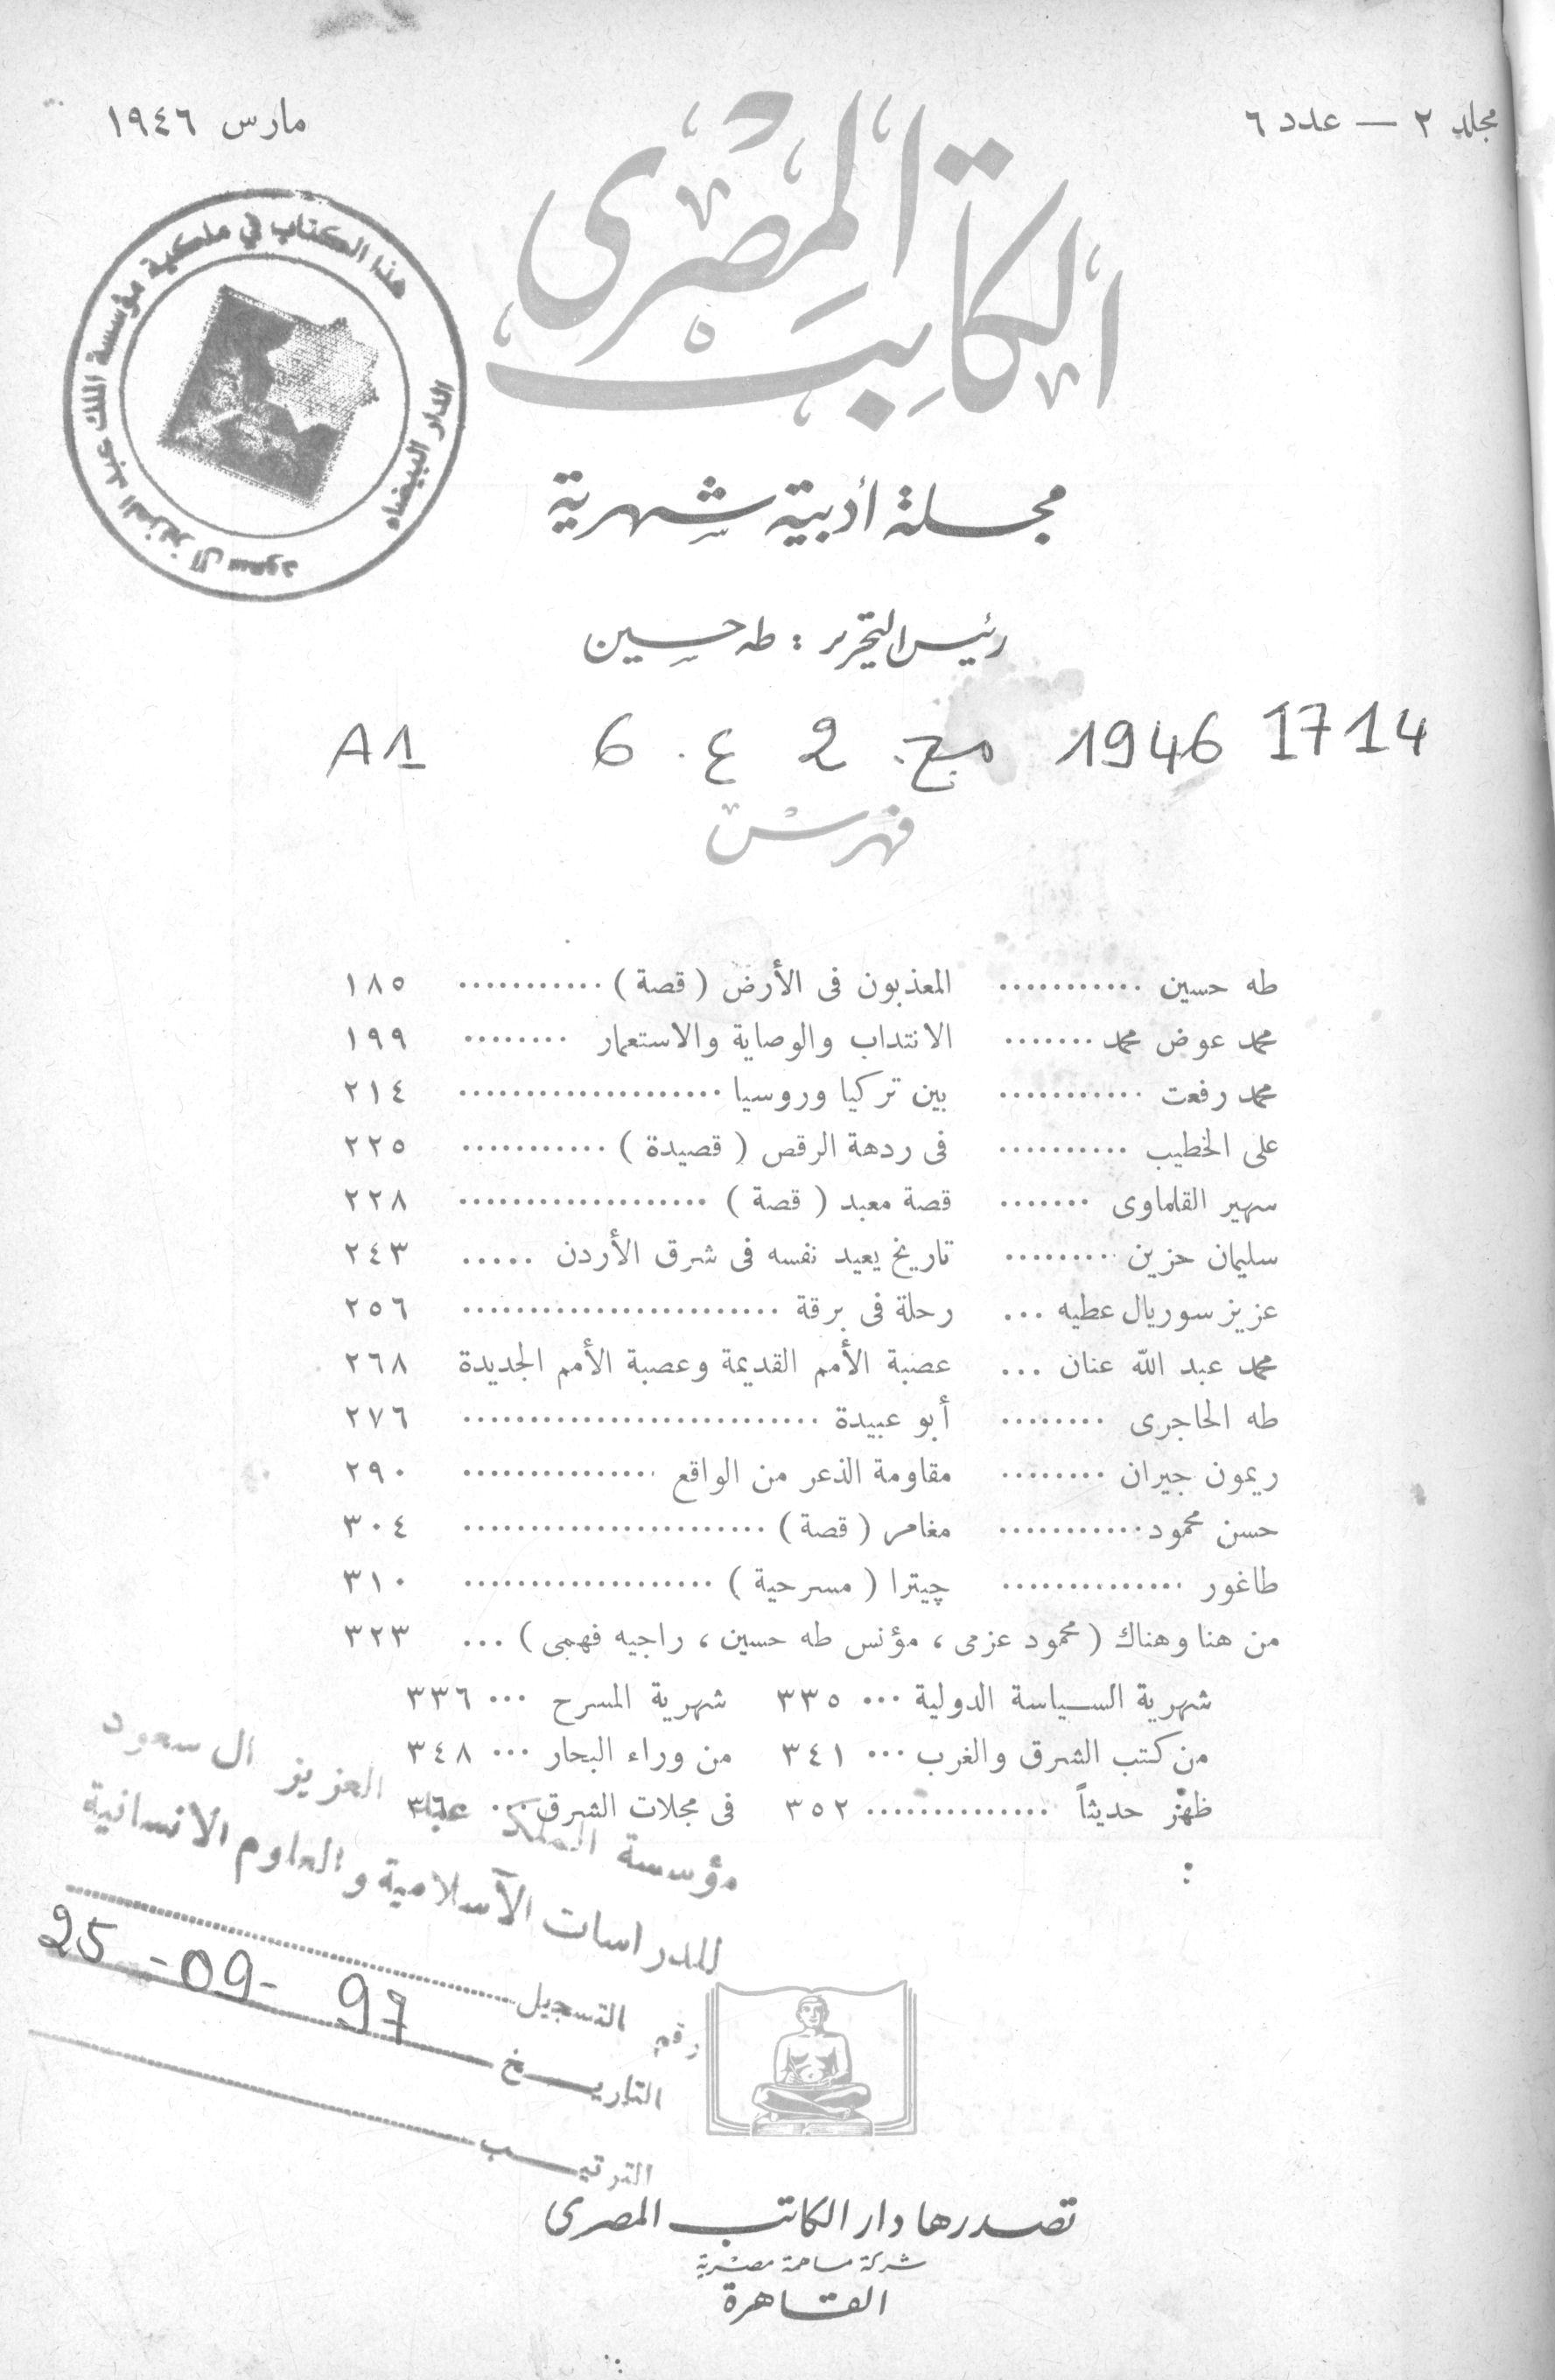 مجلد ٢ — عدد ٦
مارس ١٩٤٦
الكاتب المصرى
هذا الكتاب في ملكية مؤسسة الملك عبد العزيز ال سعود
الدار البيضاء
مجلة أدبية شهرية
رئيس التحرير : طه حسين
A1 6 ع. 2 مج. 1946 1714
فهرس
طه حسين ........... المعذبون فى الأرض ( قصة ) ........... ١٨٥
محمد عوض محمد ....... الانتداب والوصاية والاستعمار ........ ١٩٩
محمد رفعت ........... بين تركيا وروسيا .................... ٢١٤
على الخطيب .......... فى ردهة الرقص ( قصيدة ) ........... ٢٢٥
سهير القلماوى ....... قصة معبد ( قصة ) ................... ٢٢٨
سليمان حزين ......... تاريخ يعيد نفسه فى شرق الأردن ..... ٢٤٣
عزيز سوريال عطيه ... رحلة فى برقة ........................ ٢٥٦
محمد عبد الله عنان ... عصبة الأمم القديمة وعصبة الأمم الجديدة ٢٦٨
طه الحاجرى ........ أبو عبيدة ........................... ٢٧٦
ريمون جيران ........ مقاومة الذعر من الواقع ............... ٢٩٠
حسن محمود ........... مغامر ( قصة ) ....................... ٣٠٤
طاغور .............. چيترا ( مسرحية ) ................... ٣١٠
من هنا وهناك ( محمود عزمى ، مؤنس طه حسين ، راجيه فهمى ) ... ٣٢٣
شهرية السياسة الدولية ... ٣٣٥ شهرية المسرح ... ٣٣٦
من كتب الشرق والغرب ... ٣٤١ من وراء البحار ... ٣٤٨
ظهر حديثاً .............. ٣٥٢ فى مجلات الشرق ...
مؤسسة الملك عبد العزيز ال سعود
للدراسات الاسلامية والعلوم الانسانية
رقم التسجيل
التاريخ 25-09-97
الترتيب
تصدرها دار الكاتب المصرى
شركة مساهمة مصرية
القاهرة